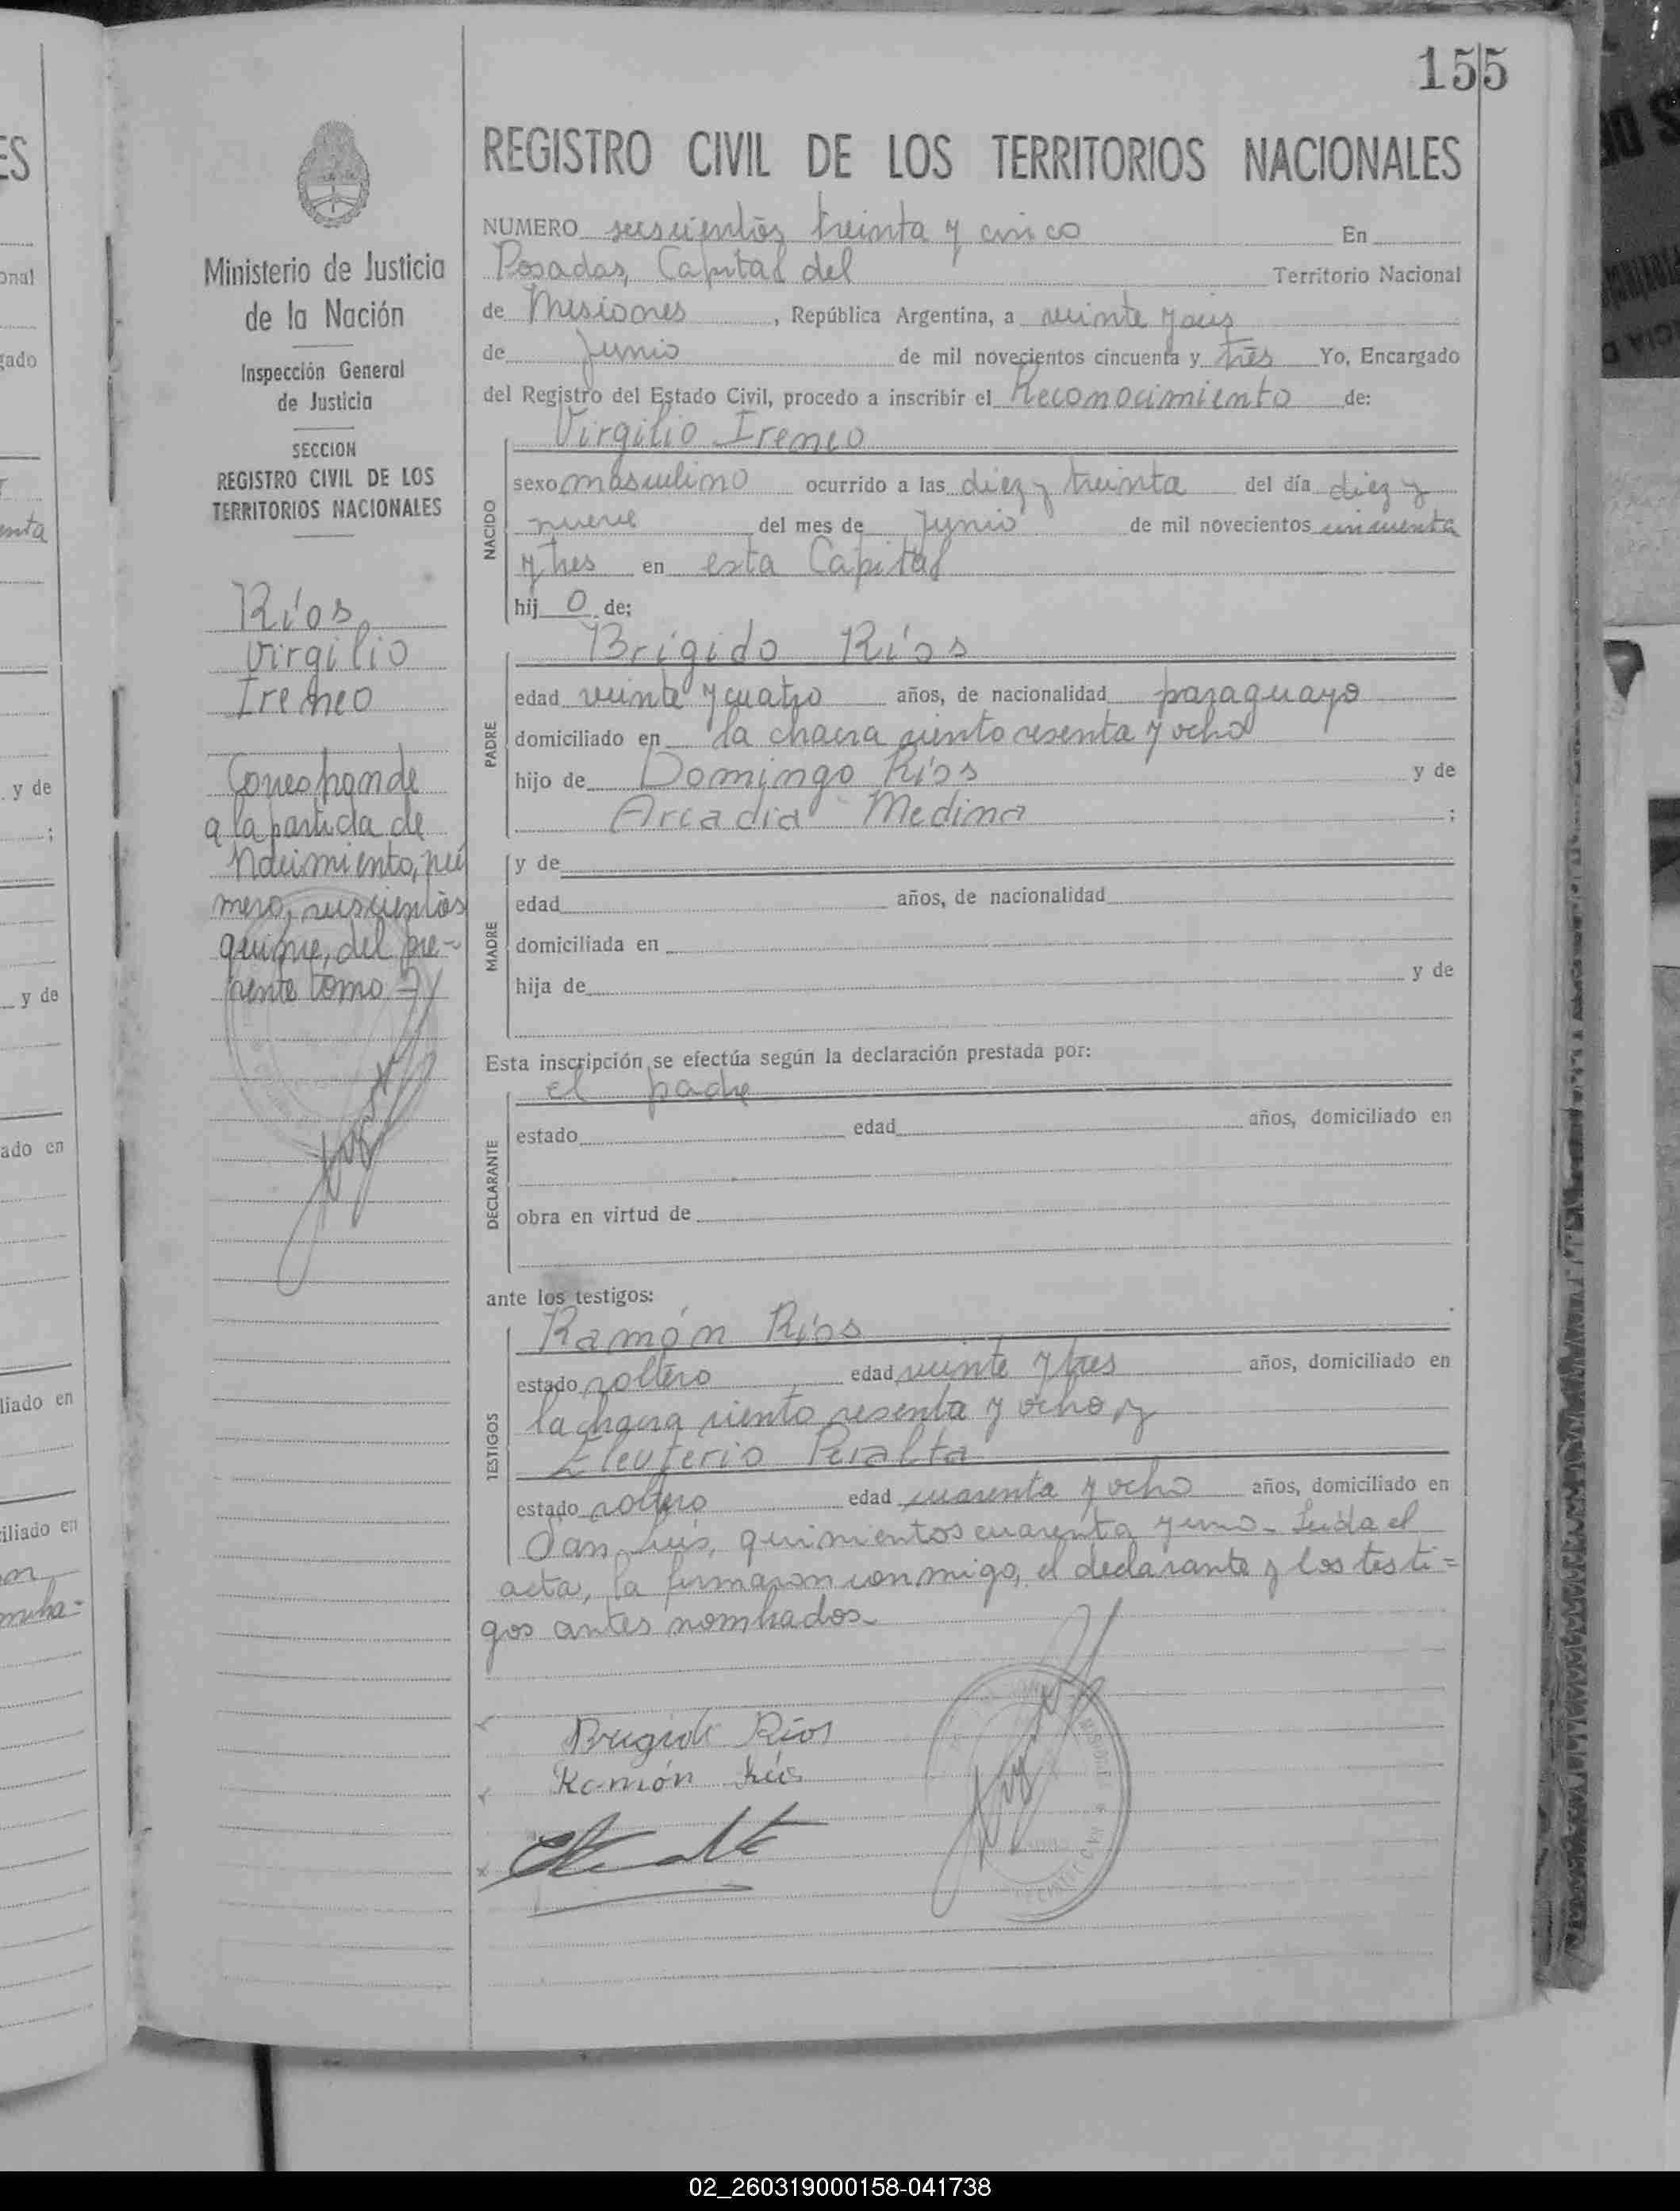 155
REGISTRO CIVIL DE LOS TERRITORIOS NACIONALES
Ministerio de Justicia
de la Nación
Inspección General
de Justicia
SECCION
REGISTRO CIVIL DE LOS
TERRITORIOS NACIONALES
Ríos
Virgilio
Ireneo
Corresponde
a la partida de
Nacimiento, nú
mero, seiscientos
quince, del pre-
sente tomo.-
NUMERO seiscientos treinta y cinco En
Posadas, Capital del Territorio Nacional
de Misiones, República Argentina, a veinte y seis
de Junio de mil novecientos cincuenta y tres Yo, Encargado
del Registro del Estado Civil, procedo a inscribir el Reconocimiento de:
Virgilio Ireneo
NACIDO
sexo masculino ocurrido a las diez y treinta del día diez y
nueve del mes de Junio de mil novecientos cincuenta
y tres en esta Capital
hij o de:
Brígido Ríos
PADRE
edad veinte y cuatro años, de nacionalidad paraguayo
domiciliado en la chacra ciento sesenta y ocho
hijo de Domingo Ríos y de
Arcadia Medina ;
MADRE
y de
edad años, de nacionalidad
domiciliada en
hija de y de
Esta inscripción se efectúa según la declaración prestada por:
el padre
DECLARANTE
estado edad años, domiciliado en
obra en virtud de
ante los testigos:
Ramón Ríos
TESTIGOS
estado soltero edad veinte y tres años, domiciliado en
la chacra ciento sesenta y ocho, y
Eleuterio Peralta
estado soltero edad cuarenta y ocho años, domiciliado en
San Luis, quinientos cuarenta y uno.- Leída el
acta, la firmaron conmigo, el declarante y los testi=
gos antes nombrados.-
Brigido Ríos
Ramón Ríos
02_260319000158-041738